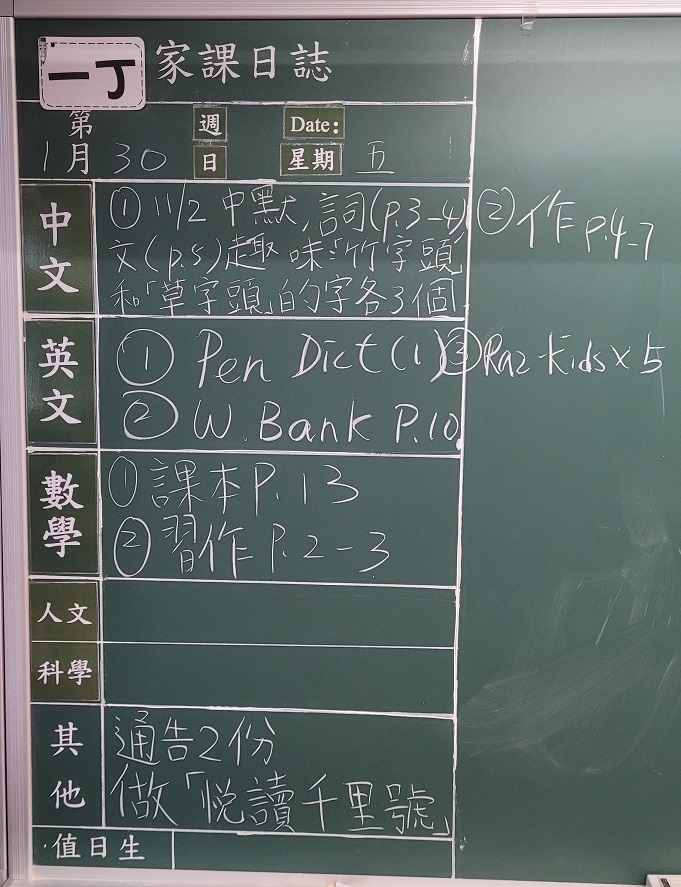 一丁 家課日誌
第 週 Date:
1月30日 星期 五
中文 ① 11/2 中默,詞(P.3-4) ② 作 P.4-7
文(p.5)趣味:「竹字頭」
和「草字頭」的字各3個
英文 ① Pen Dict (1) ③ Raz-Kids x 5
② W. Bank P.10
數學 ① 課本P.13
② 習作P.2-3
人文
科學
其他 通告2份
做「悅讀千里號」
值日生